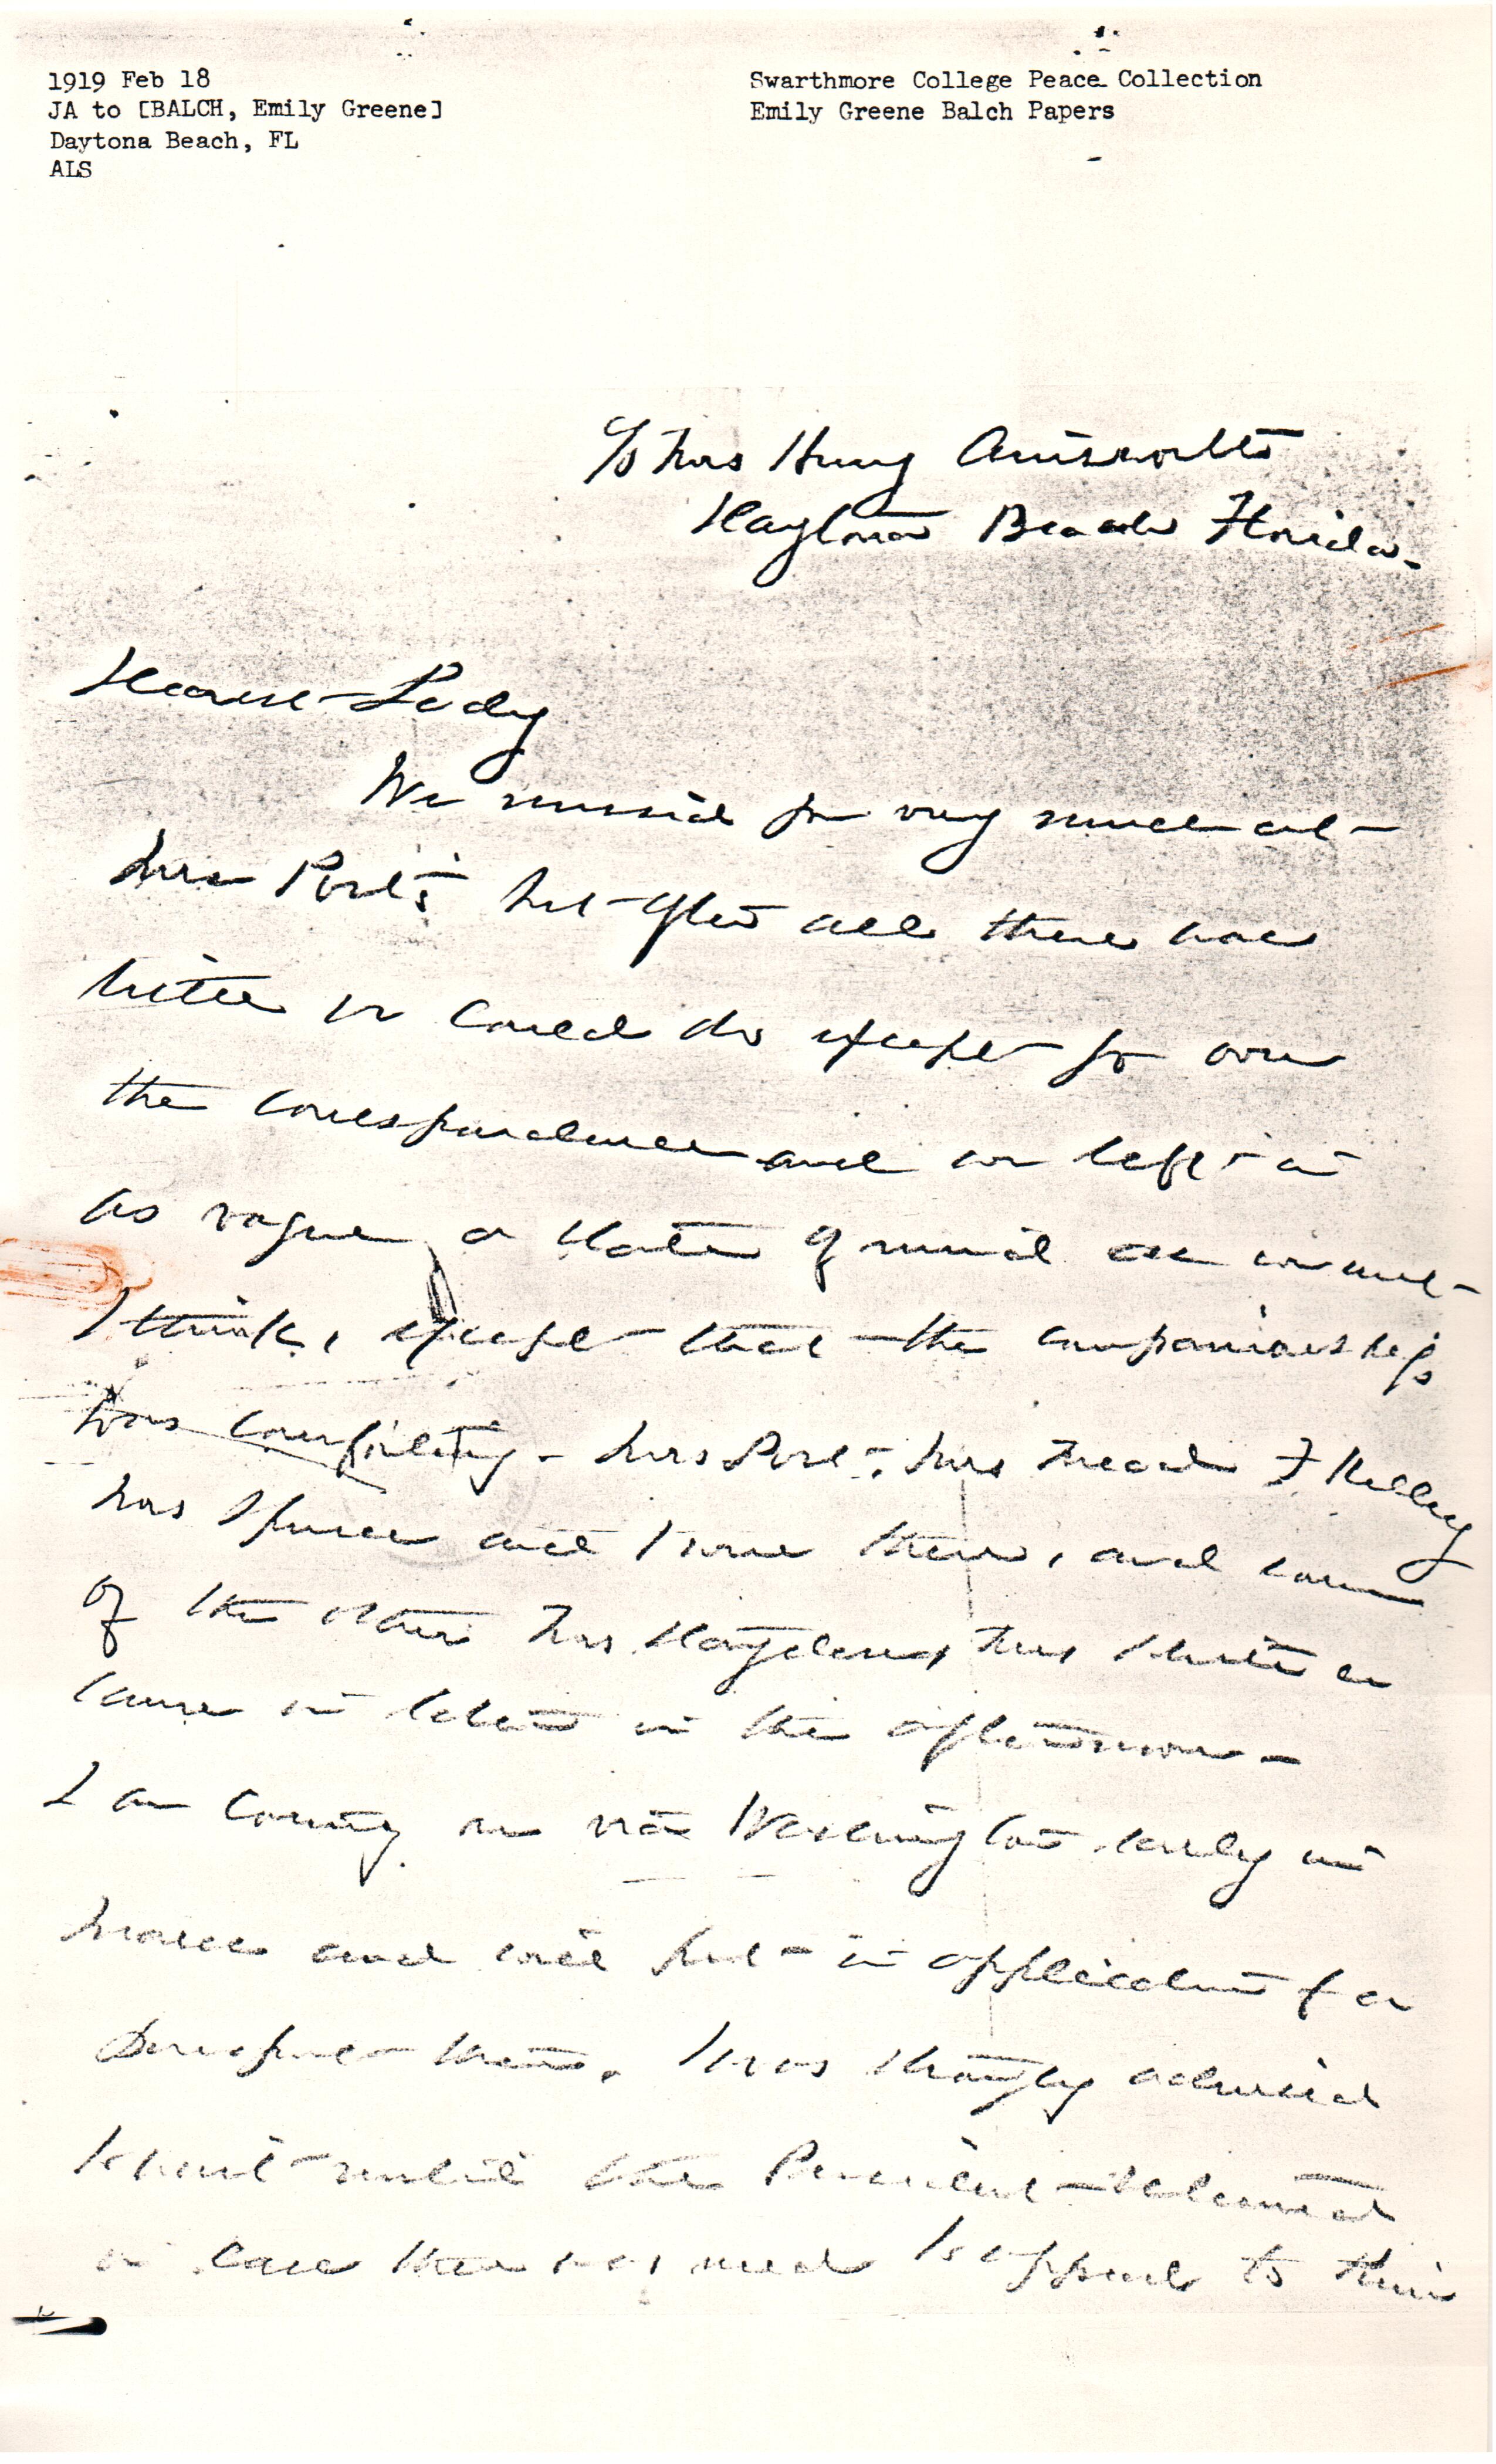 1919 Feb 18
JA to [BALCH, Emily Greene]
Daytona Beach, FL
ALS
Swarthmore College Peace Collection
Emily Greene Balch Papers
c/o Mrs Henry Ainsworth
Daytona Beach Florida.
Dearest Lady
We missed you very much at
Mrs Post's but after all there was
little we could do except go over
the correspondence and we left in
as vague a state of mind as we met
I think, except that the companionship
was comforting - Mrs Post, Mrs Mead F Kelley
Mrs Spencer and I were there, and some
of the others Mrs
came in later in the afternoon -
I am coming on via Washington early in
March and will put in application for
passport then. I was strongly advised
to wait until the President returned
in case there was need to appeal to him